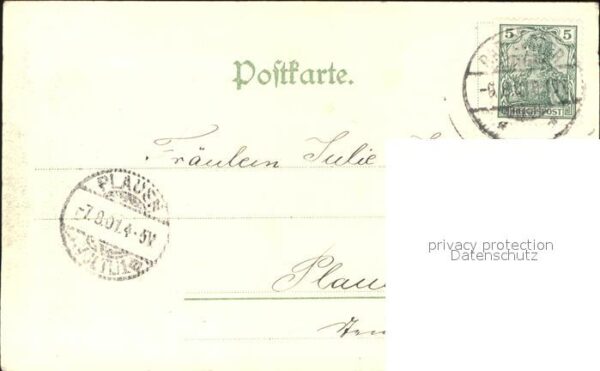 5 5
REICHSPOST
Postkarte.
Fräulein Julie
PLAUEN
-7.8.01.4-5V
privacy protection
Datenschutz
Plau